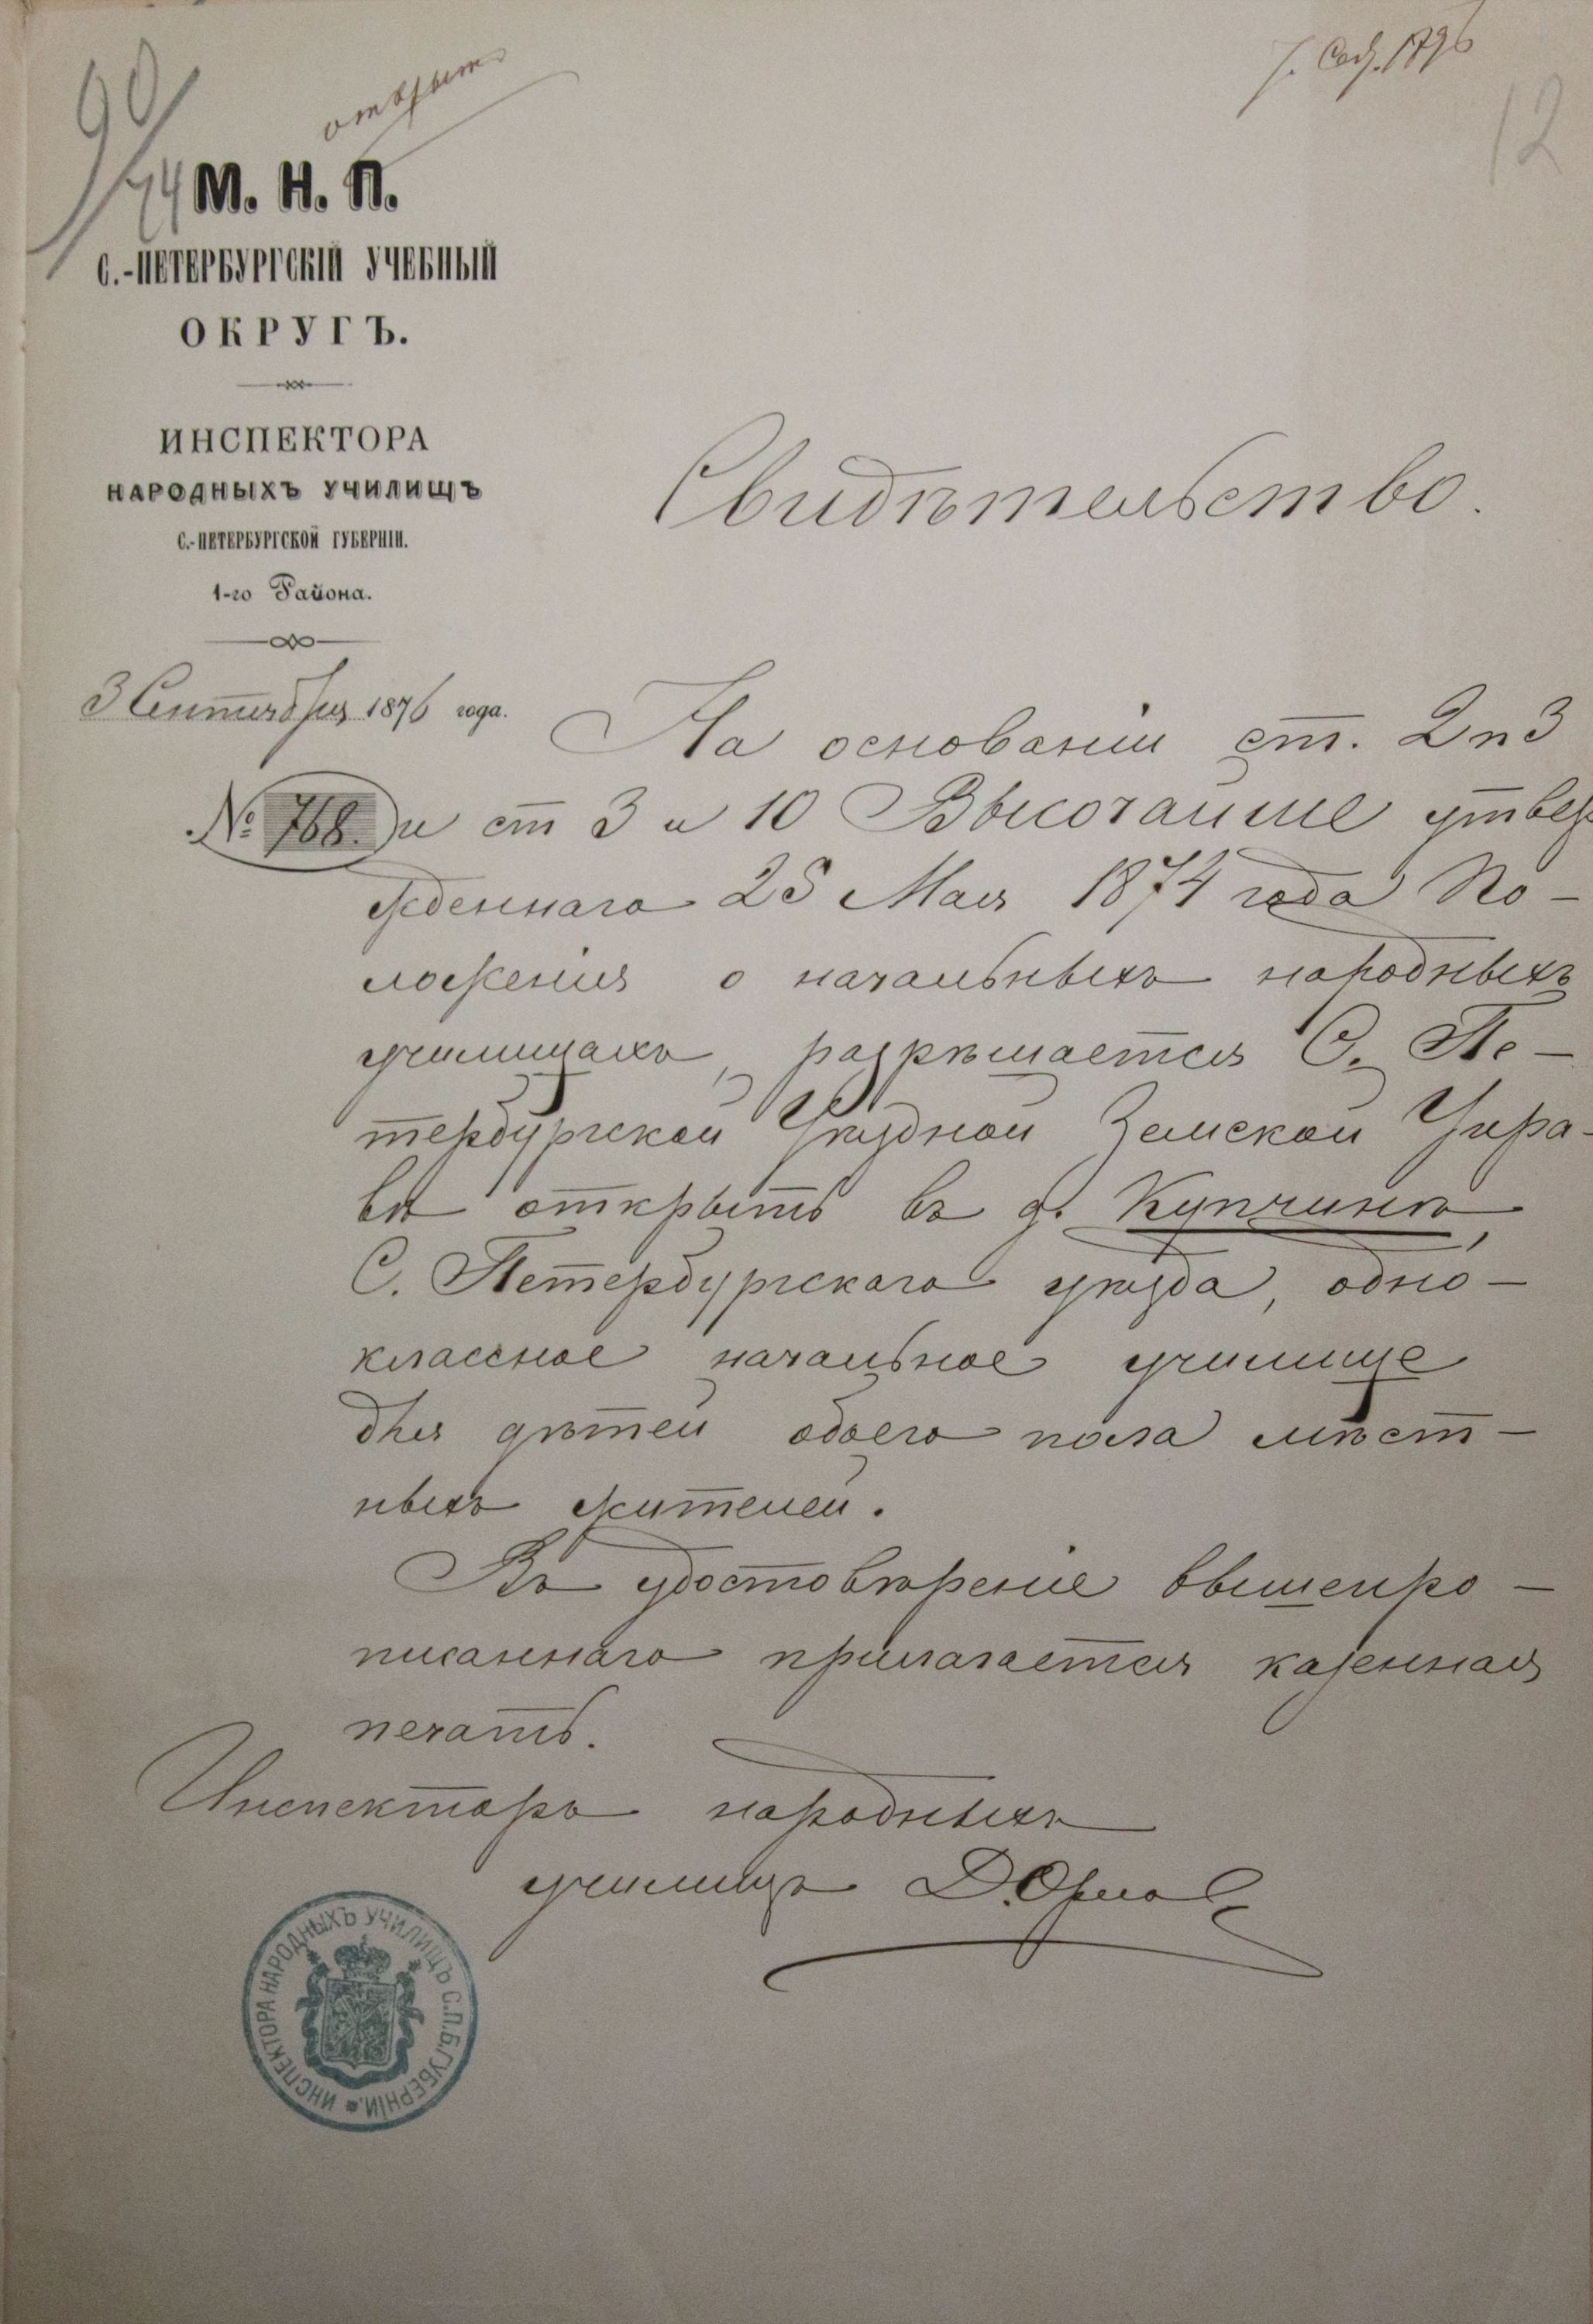 90/74
открыт
7. Сен. 1876
12
М. Н. П.
С.-ПЕТЕРБУРГСКІЙ УЧЕБНЫЙ
ОКРУГЪ.
ИНСПЕКТОРА
НАРОДНЫХЪ УЧИЛИЩЪ
С.-ПЕТЕРБУРГСКОЙ ГУБЕРНІИ.
1-го Района.
3 Сентября 1876 года.
№ 768.
Свидѣтельство.
На основаніи ст. 2 п 3
и ст 3 и 10 Высочайше утвер
жденнаго 25 Мая 1874 года По-
ложенія о начальныхъ народныхъ
училищахъ, разрѣшается С. Пе-
тербургской Уѣздной Земской Упра-
вѣ открыть въ д. Купчинѣ,
С. Петербургскаго уѣзда, одно-
классное начальное училище
для дѣтей обоего пола мѣст-
ныхъ жителей.
Въ удостовѣреніе вышепро-
писаннаго прилагается казенная
печать.
Инспекторъ народныхъ
училищъ Д. Орлов
ИНСПЕКТОРА НАРОДНЫХЪ УЧИЛИЩЪ С.П.Б. ГУБЕРНІИ.